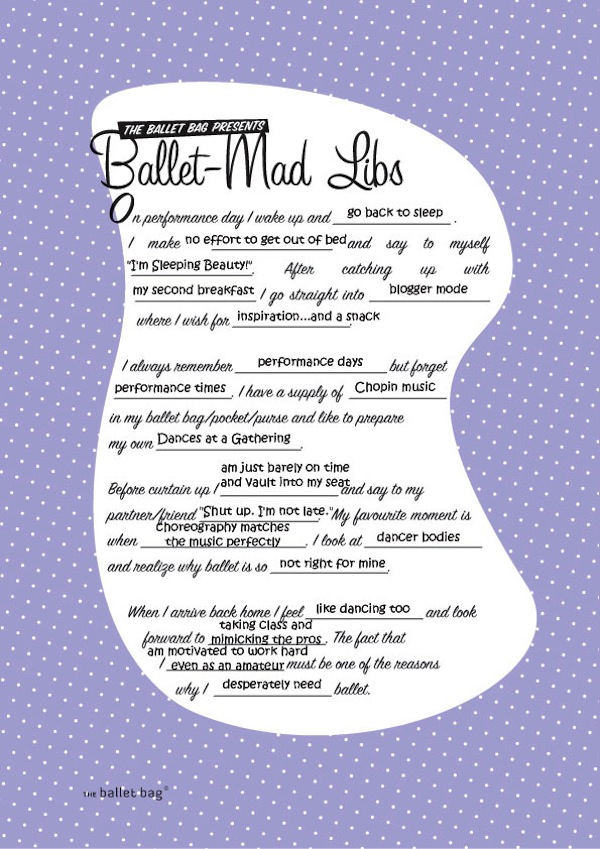 THE BALLET BAG PRESENTS
Ballet-Mad Libs
On performance day I wake up and go back to sleep .
I make no effort to get out of bed and say to myself
"I'm Sleeping Beauty!". After catching up with
my second breakfast I go straight into blogger mode
where I wish for inspiration...and a snack.
I always remember performance days but forget
performance times. I have a supply of Chopin music
in my ballet bag/pocket/purse and like to prepare
my own Dances at a Gathering.
am just barely on time
Before curtain up I and vault into my seat and say to my
partner/friend "Shut up. I'm not late." My favourite moment is
choreography matches
when the music perfectly . I look at dancer bodies
and realize why ballet is so not right for mine.
When I arrive back home I feel like dancing too and look
taking class and
forward to mimicking the pros. The fact that
am motivated to work hard
I even as an amateur must be one of the reasons
why I desperately need ballet.
THE ballet bag®